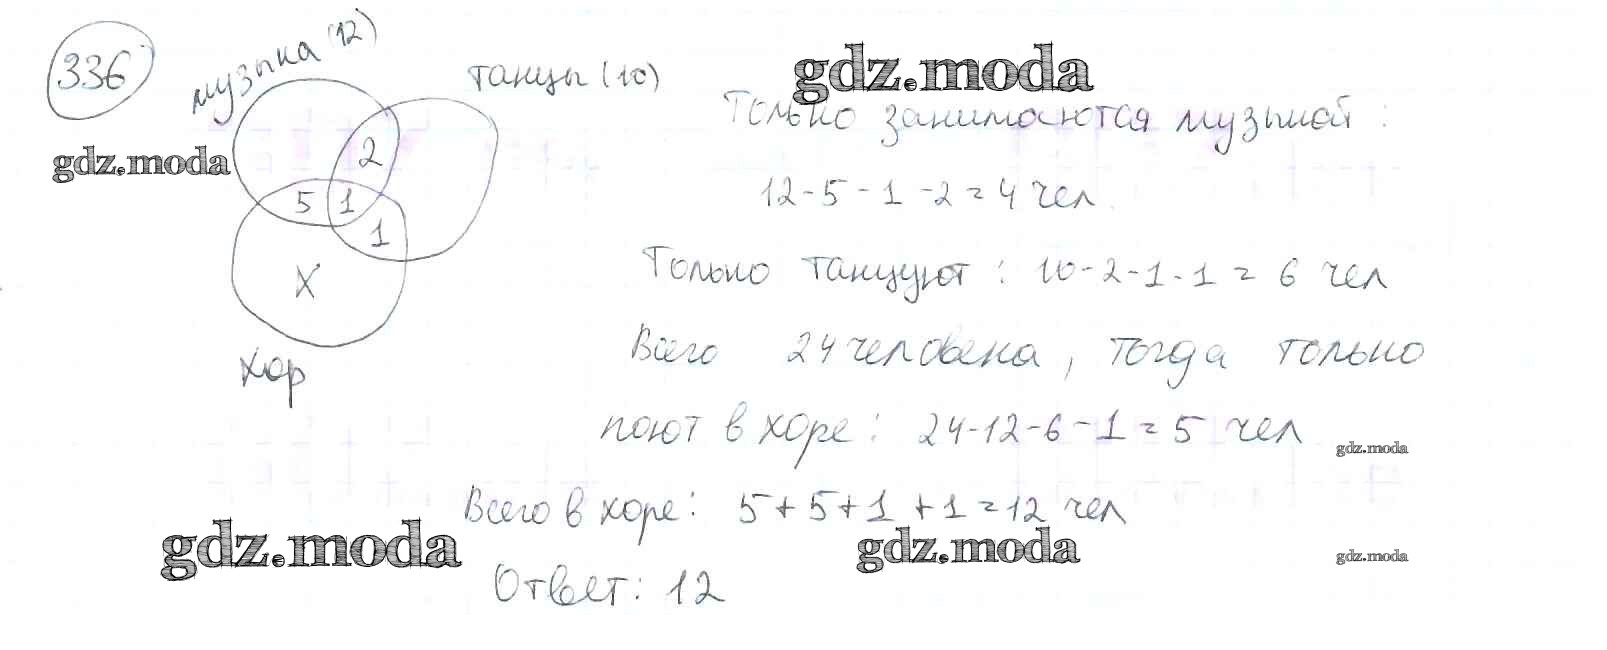 336
музыка (12)
танцы (10)
gdz.moda
gdz.moda
Только занимаются музыкой:
12-5-1-2=4 чел.
2
5
1
1
X
хор
Только танцуют: 10-2-1-1=6 чел
Всего 24 человека, тогда только
поют в хоре: 24-12-6-1=5 чел
gdz.moda
Всего в хоре: 5+5+1+1=12 чел
gdz.moda
gdz.moda
gdz.moda
Ответ: 12